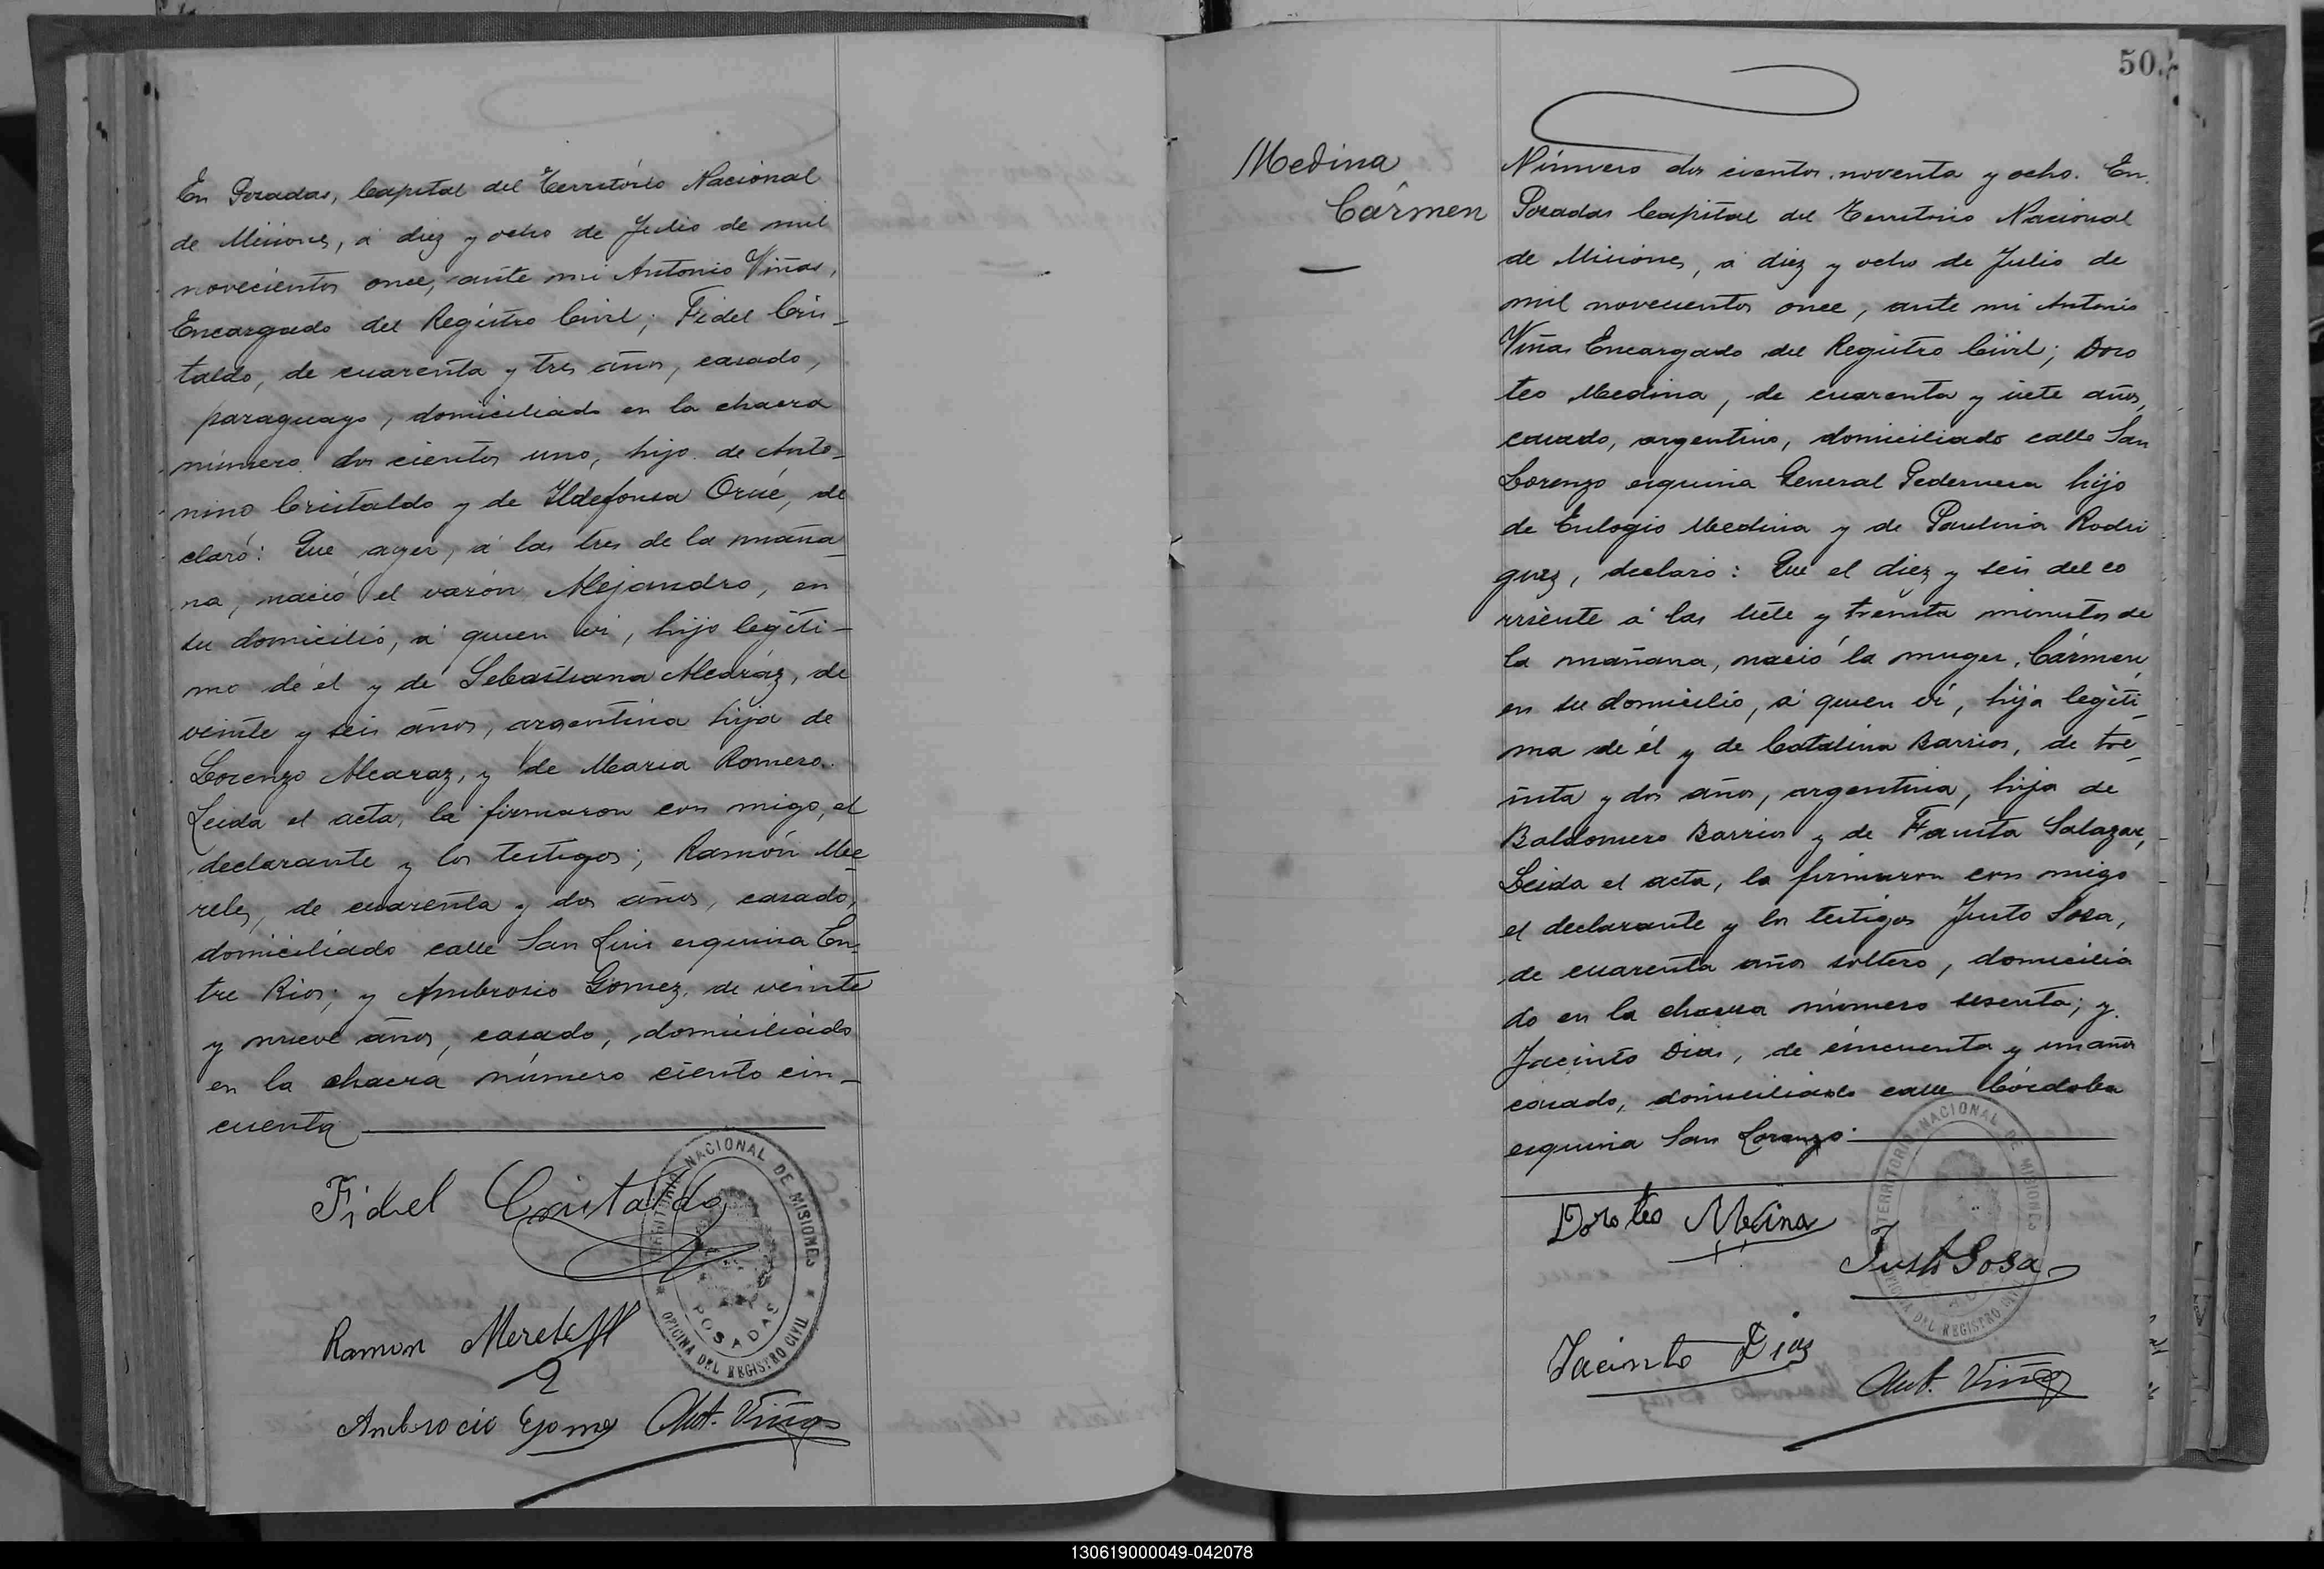 En Posadas, Capital del Territorio Nacional
de Misiones, á diez y ocho de Julio de mil
novecientos once, ante mi Antonio Viñas,
Encargado del Registro Civil; Fidel Cris-
taldo, de cuarenta y tres años, casado,
paraguayo, domiciliado en la chacra
número dos cientos uno, hijo de Anto-
nino Cristaldo y de Ildefonsa Orué, de
claró: Que ayer, á las tres de la maña-
na, nació el varón Alejandro, en
su domicilio, á quien vi, hijo legíti-
mo de él y de Sebastiana Alcaráz, de
veinte y seis años, argentina hija de
Lorenzo Alcaraz, y de Maria Romero.
Leida el acta, la firmaron con migo, el
declarante y los testigos; Ramón Me-
reles, de cuarenta y dos años, casado,
domiciliado calle San Luis esquina En-
tre Rios; y Ambrosio Gomez, de veinte
y nueve años, casado, domiciliado
en la chacra número ciento cin-
cuenta
Fidel Cristaldo
Ramon Mereles
Ambrocio Gomez Ant. Viñas
TERRITORIO NACIONAL DE MISIONES
POSADAS
OFICINA DEL REGISTRO CIVIL
50.
Medina
Cármen
Número dos cientos noventa y ocho. En
Posadas Capital del Territorio Nacional
de Misiones, á diez y ocho de Julio de
mil novecientos once, ante mi Antonio
Viñas Encargado del Registro Civil; Doro
teo Medina, de cuarenta y siete años,
casado, argentino, domiciliado calle San
Lorenzo esquina General Pedernera hijo
de Eulogio Medina y de Paulina Rodri
guez, declaró: Que el diez y seis del co
rriente á las siete y treinta minutos de
la mañana, nació la muger, Cármen,
en su domicilio, á quien vi, hija legíti-
ma de él y de Catalina Barrios, de tre-
inta y dos años, argentina, hija de
Baldomero Barrios y de Fausta Salazar,
Leida el acta, la firmaron con migo
el declarante y los testigos Justo Sosa,
de cuarenta años soltero, domicilia
do en la chacra número sesenta; y
Jacinto Dias, de cincuenta y un años
casado, domiciliado calle Córdoba
esquina San Lorenzo.
Doroteo Medina
Justo Sosa
Jacinto Diaz
Ant. Viñas
TERRITORIO NACIONAL DE MISIONES
OFICINA DEL REGISTRO CIVIL
130619000049-042078